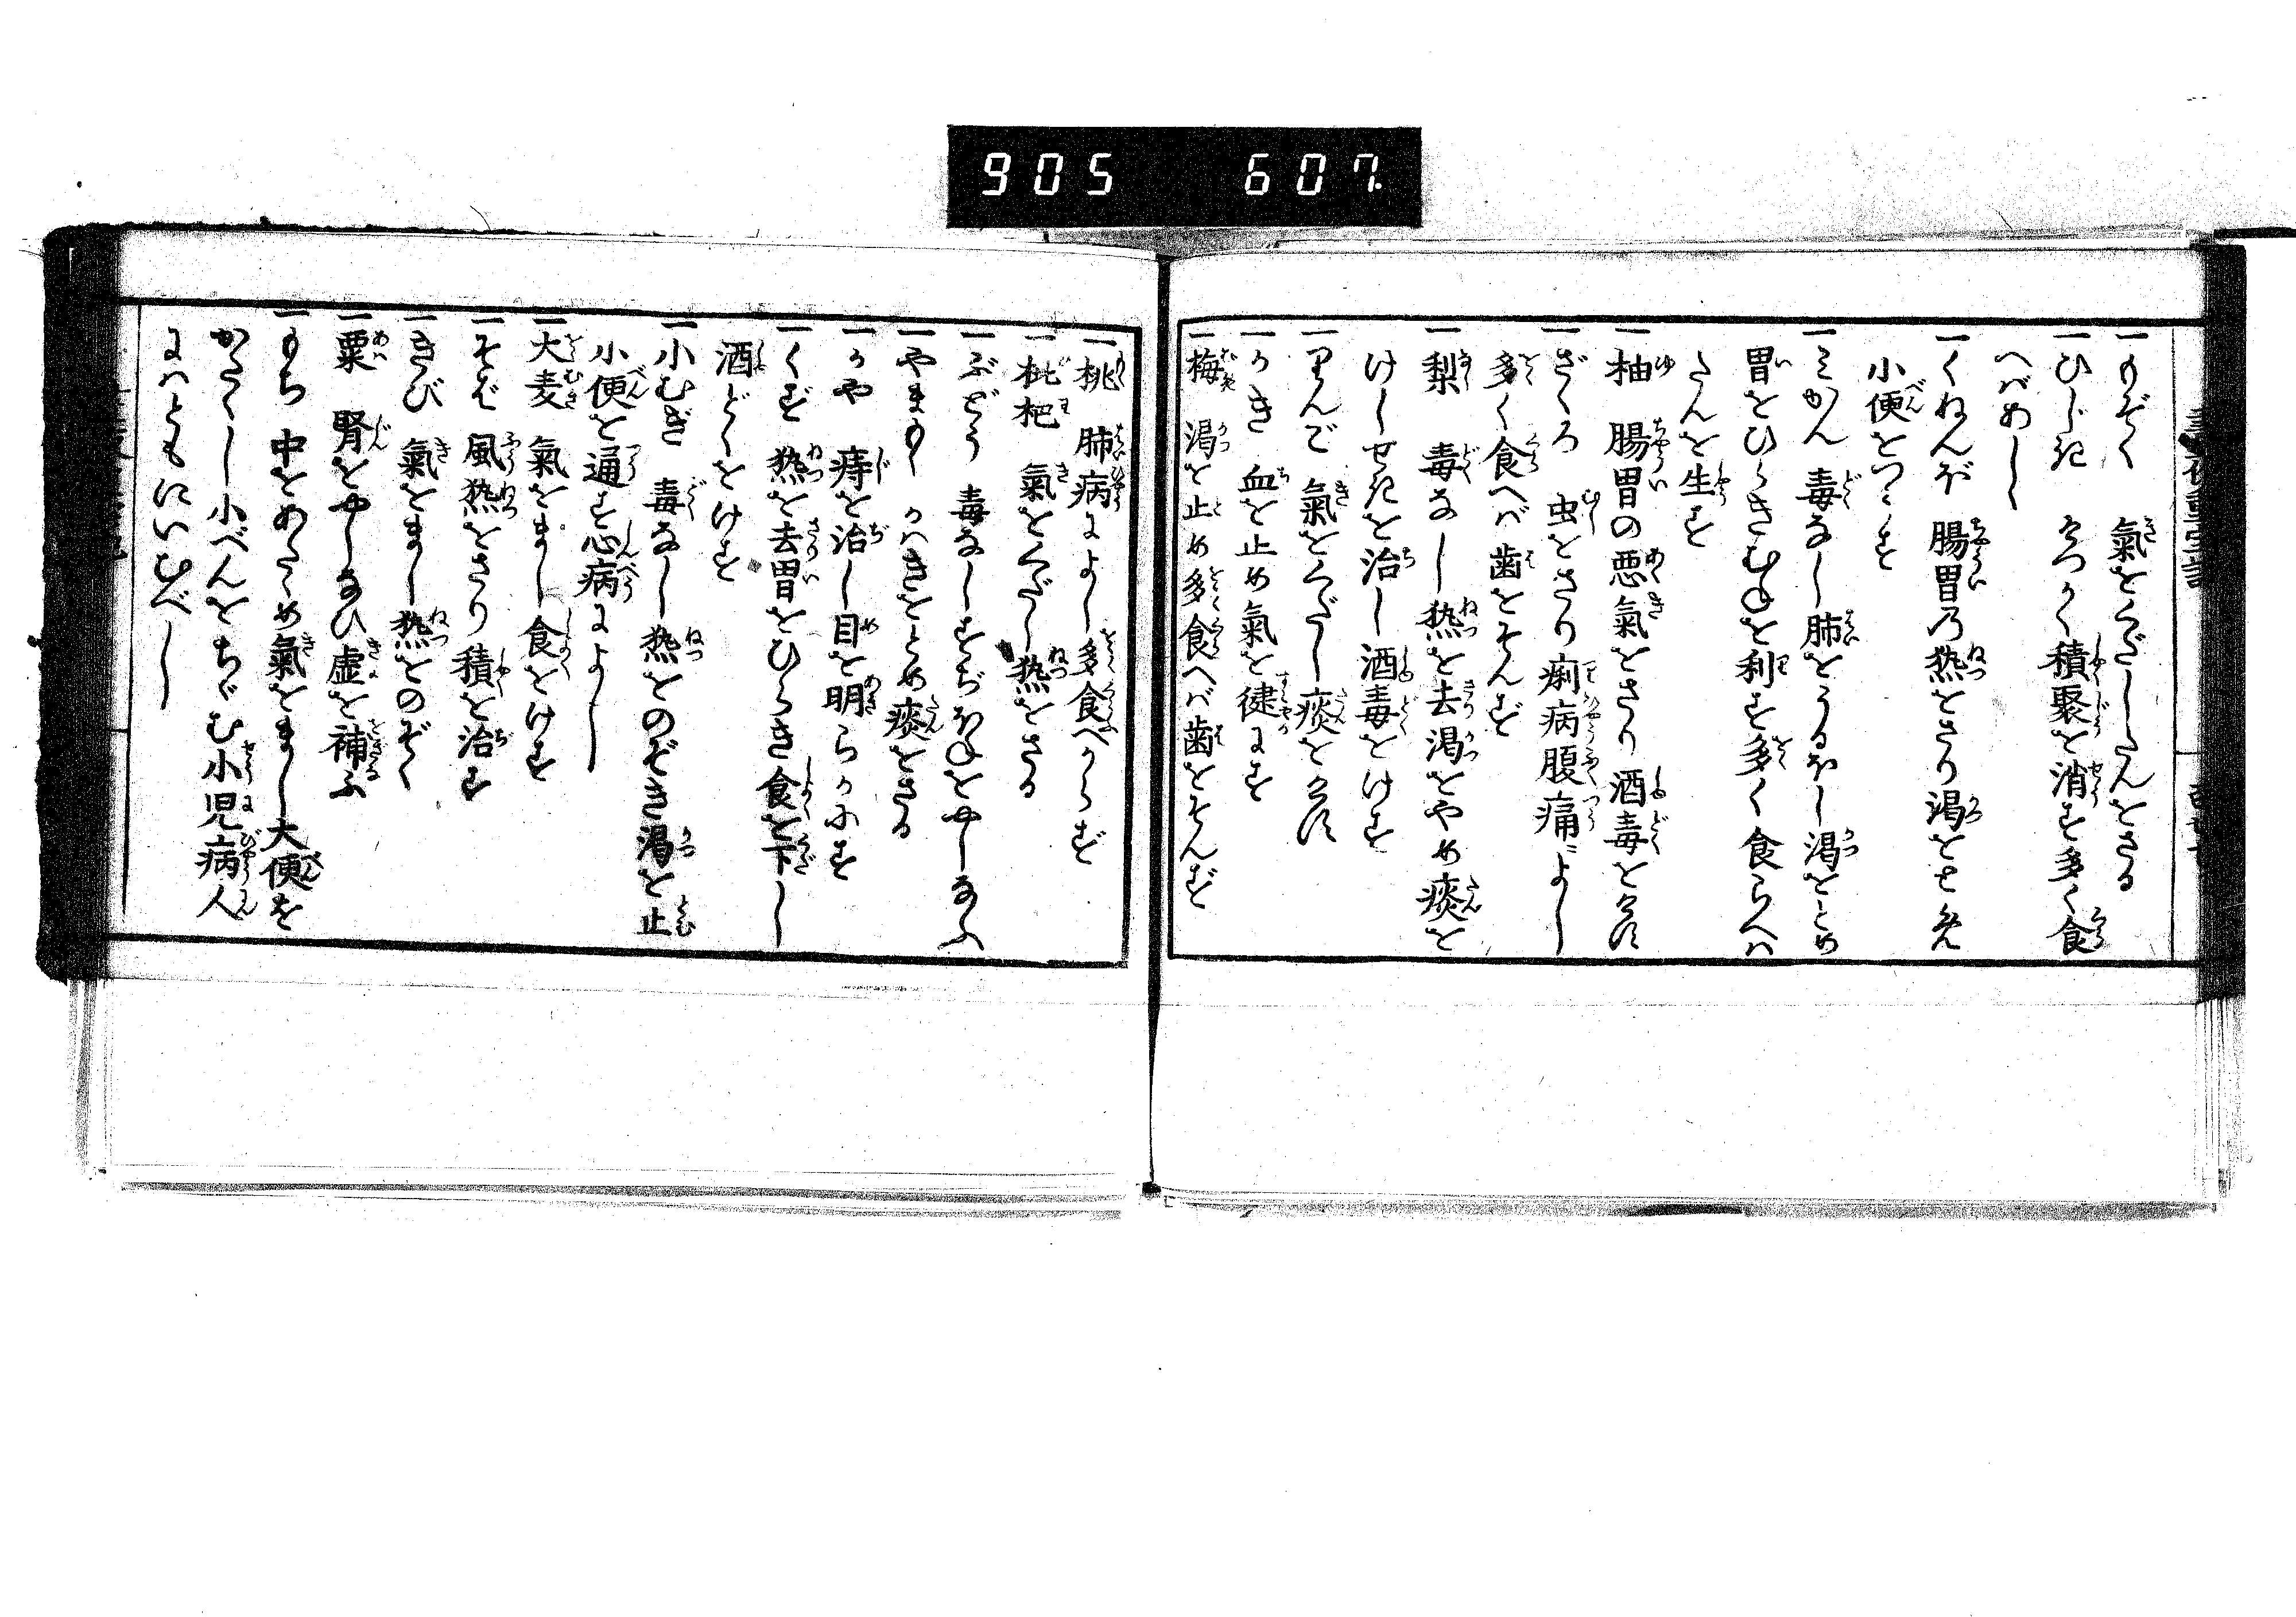 905 607
一もぞく 氣をくだしたんをさる
一ひじき 積聚を消す多く食
へバあし
一くねんぼ 腸胃乃熱をさり渇をとめ
小便をつうず
一ミかん 毒なし肺をうるほし渇をとめ
胃をひらきむねを利す多く食らへハ
たんを生ず
一柚 腸胃の悪氣をさり酒毒をけす
一ざくろ 虫をさり痢病腹痛によし
多く食へバ歯をそんず
一梨 毒なし熱を去渇をやめ痰を
けしせきを治し酒毒をけす
一りんご 氣をくだし痰をけす
一かき 血を止め氣を健にす
一梅 渇を止め多食へバ歯をそんず
一桃 肺病によし多食べからず
一枇杷 氣をくだし熱をさる
一ぶどう 毒なしすぢほねをやしなふ
一やまもゝ かハきをとめ痰をさる
一かや 痔を治し目を明らかにす
一くず 熱を去胃をひらき食を下し
酒どくをけす
一小むぎ 毒なし熱をのぞき渇を止
小便を通ず心病によし
一大麦 氣をまし食をけす
一そば 風熱をさり積を治す
一きび 氣をまし熱をのぞく
一粟 腎をやしなひ虚を補ふ
一もち 中をあたゝめ氣をまし大便を
かたくし小べんをちゞむ小児病人
にハともにいむべし